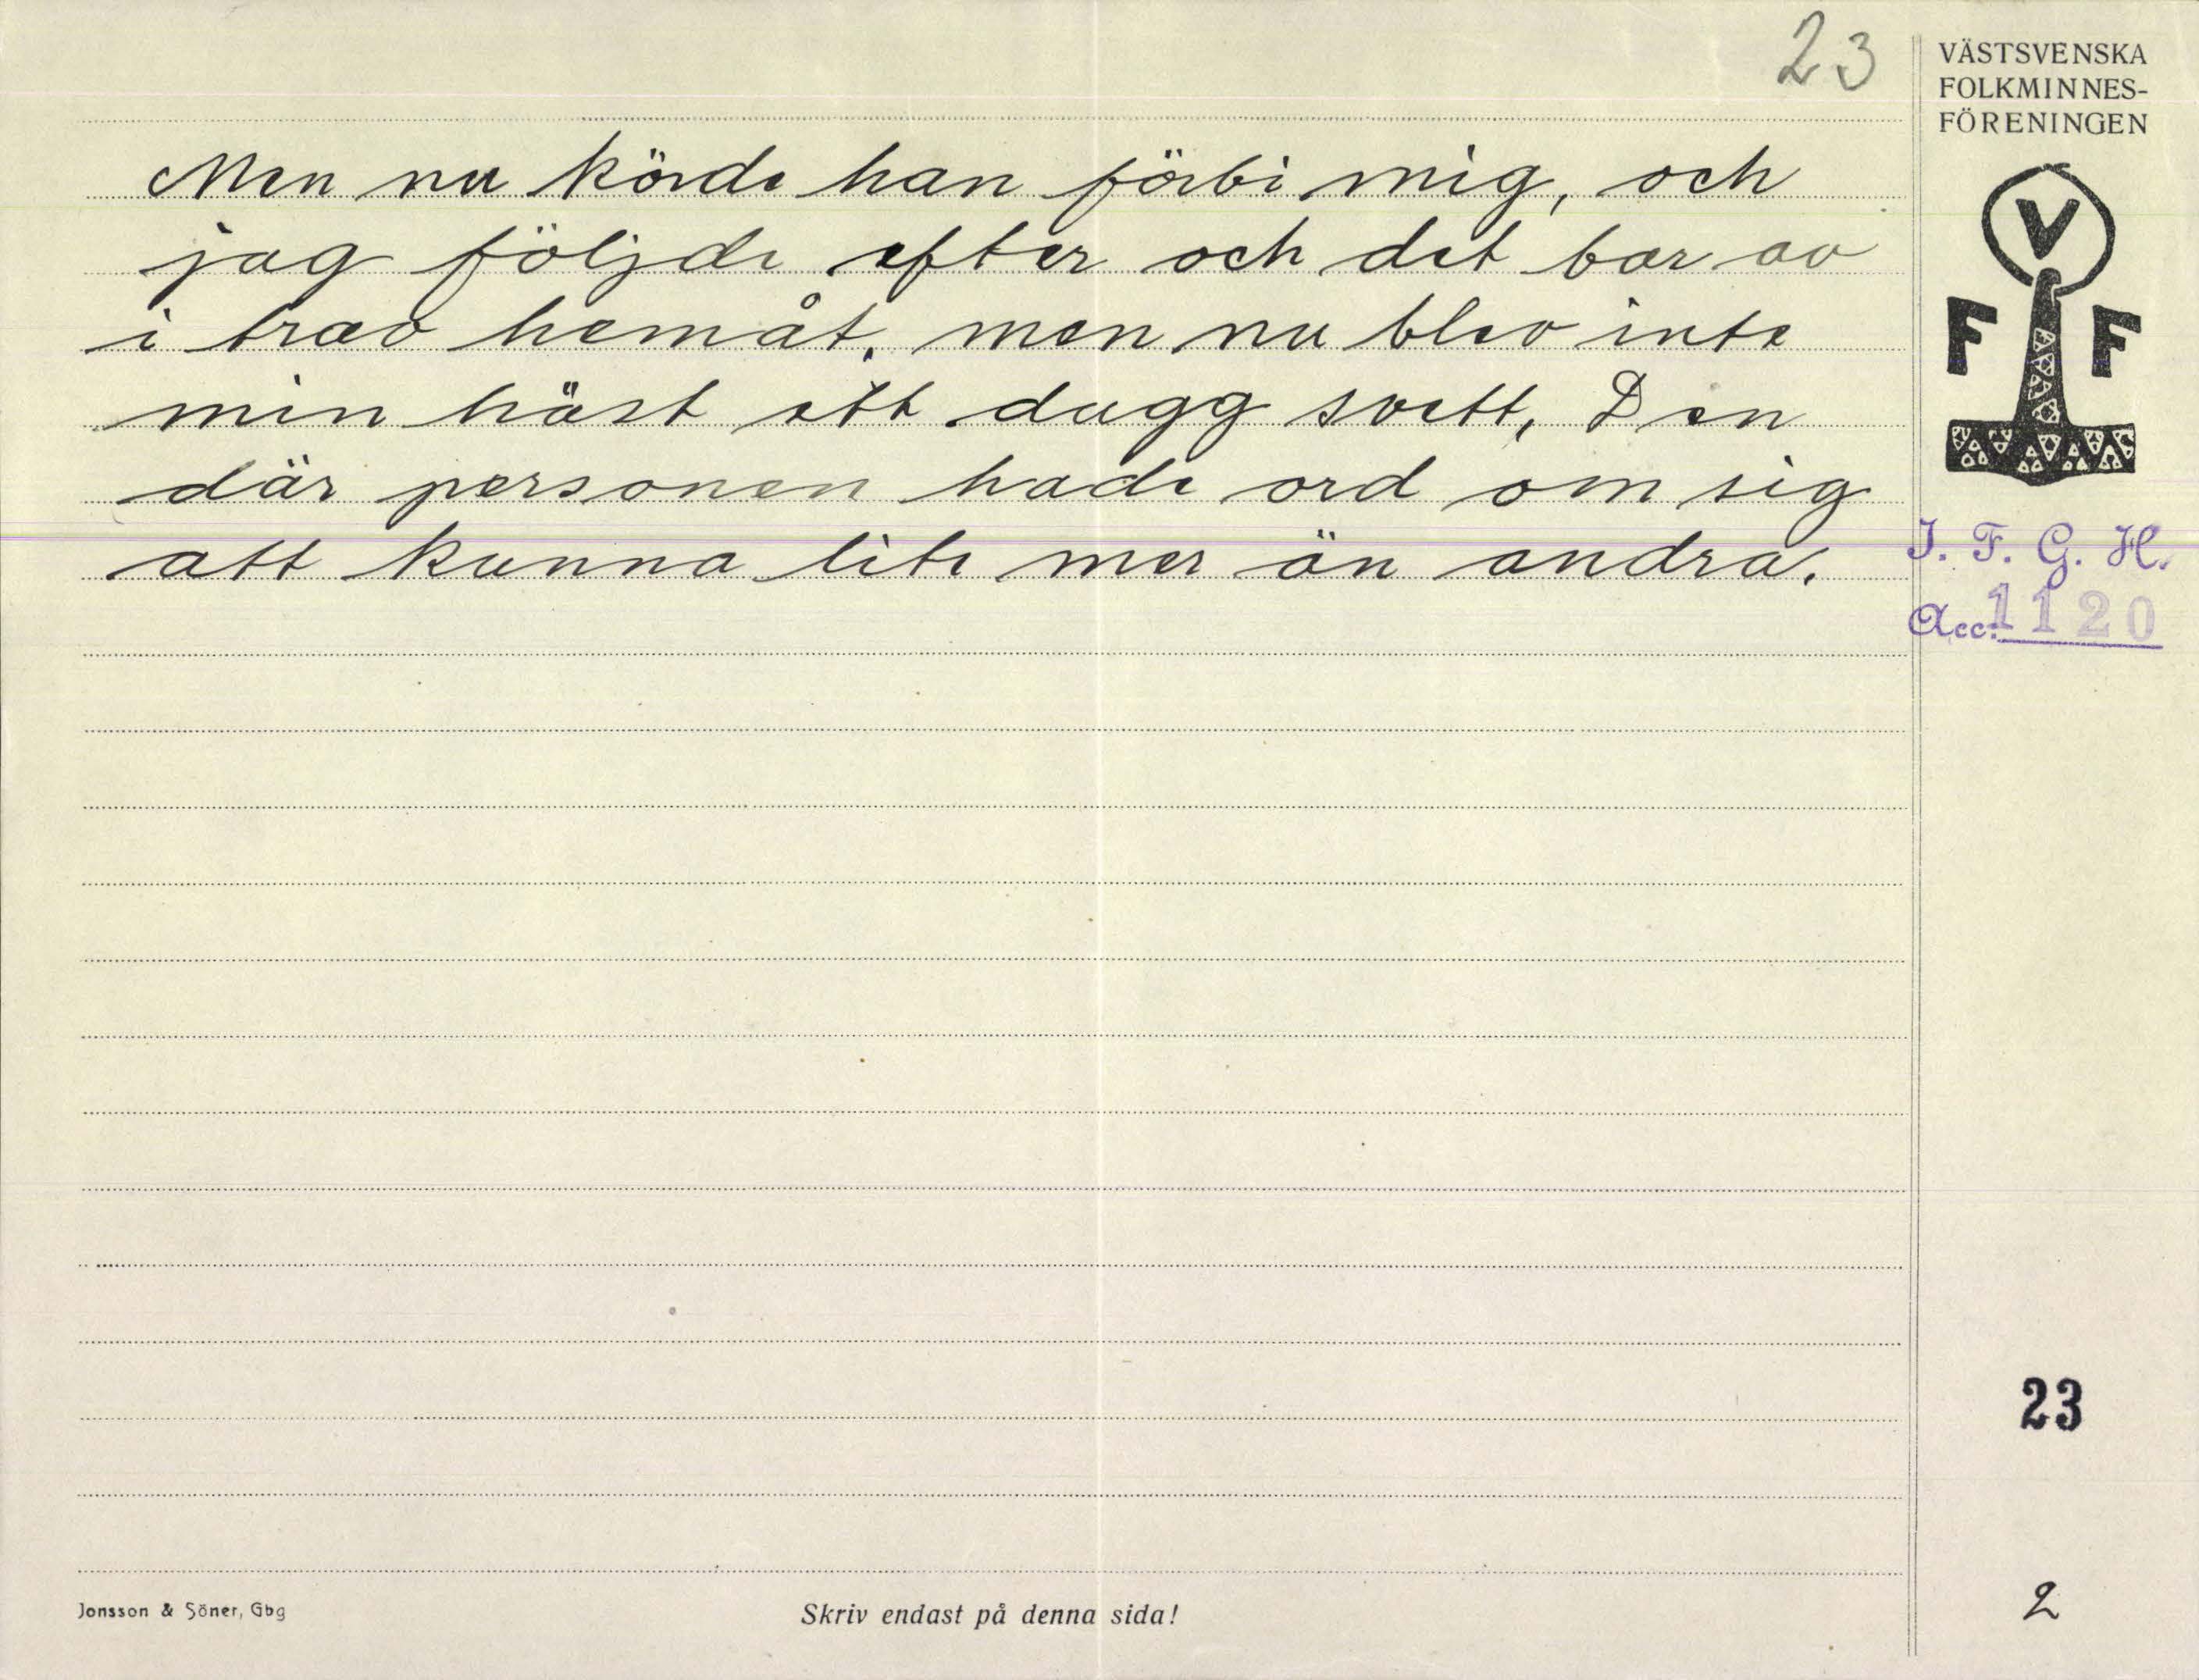 23
VÄSTSVENSKA
FOLKMINNES-
FÖRENINGEN
Men nu körde han förbi mig, och
jag följde efter och det bar av
i trav hemåt, men nu blev inte
min häst ett dugg svett, Den
där personen hade ord om sig
att kunna lite mer än andra.
V
F F
I. F. G. H.
Acc. 1120
23
Jonsson & Söner, Gbg
Skriv endast på denna sida!
2